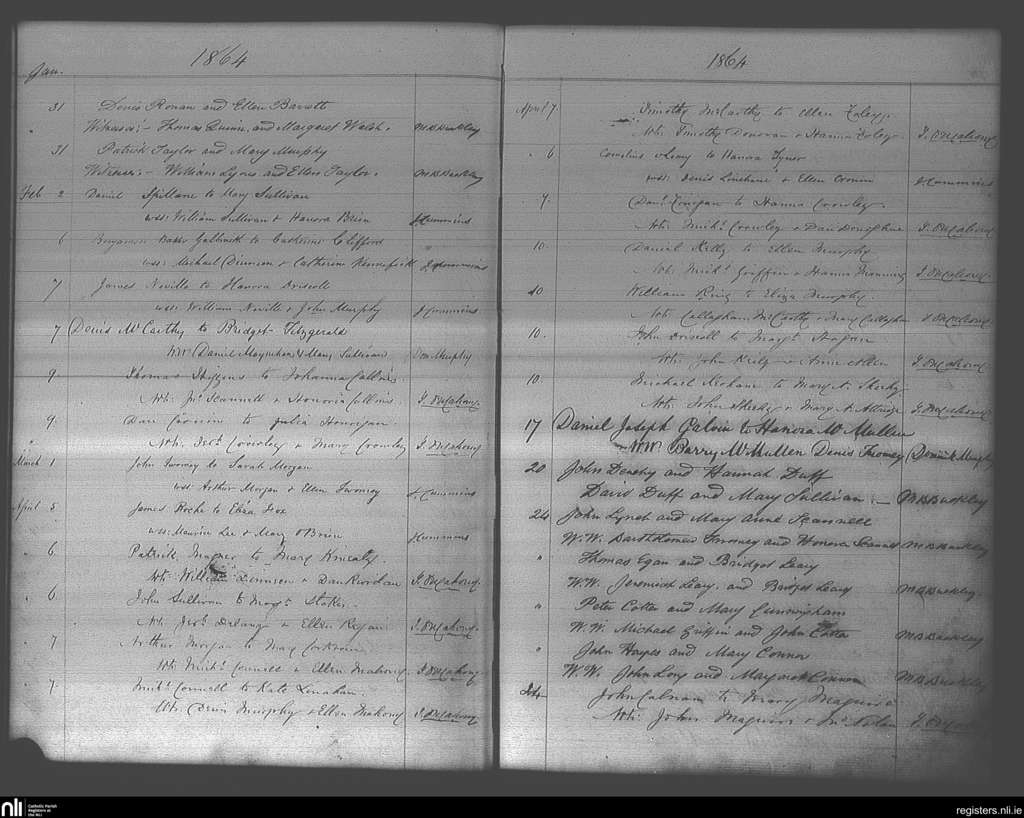 1864
Jan.
31 Denis Ronan and Ellen Barrett
" Witnesses:- Thomas Quinn, and Margaret Walsh. M B Buckley
31 Patrick Taylor and Mary Murphy
Witnesses:- William Lyons and Ellen Taylor. M B Buckley
Feb 2 Daniel Spillane to Mary Sullivan
wss: William Sullivan & Hanora Brien J Cummins
6 Benjamin Galbraith to Catherine Clifford
wss: Michael Dennison & Catherine J Cummins
7 James Neville to Hanora Driscoll
wss: William Neville & John Murphy J Cummins
7 Denis McCarthy to Bridget Fitzgerald
WW Daniel & Mary Sullivan Dom Murphy
9. Thomas Higgins to Johanna Collins
Wts: Jno. Scannell & Honoria Collins J. O'Mahony
9. Dan Cronin to Julia Hourigan
Wts: Crowley & Mary Crowley J. O'Mahony
March 1 John Twomey to Sarah Morgan
wss: Arthur Morgan & Ellen Twomey J Cummins
April 5 James Roche to Eliza Fox
wss: Maurice Lee & Mary O'Brien J Cummins
" 6 Patrick to Mary Kinealy.
Wts: William Dennison & Dan Riordan J. O'Mahony.
" 6 John Sullivan to Margt. Stokes.
Wts: Delany & Ellen Regan J. O'Mahony.
7 Arthur Morgan to Mary Corkoran
Wts: Michl. Connell & Ellen Mahony J. O'Mahony
7. Michl. Connell to Kate Linahan.
Wts: Denis Murphy & Ellen Mahony J. O'Mahony
1864
April 7. Timothy McCarthy to Ellen Foley.
Wts: Timothy Donovan & Hanna Foley. J. O'Mahony
" 6 Cornelius O'Leary to Hanora Tynor
wss: Denis Linehane & Ellen Cronin J Cummins
7. Danl. to Hanna Crowley.
Wts: Michl. Crowley & Dan Donoghue J. O'Mahony
10. Daniel Kelly to Ellen Murphy
Wts: Michl. Griffin & Hanna Manning J. O'Mahony.
10 William Ring to Eliza Murphy.
Wts: Callaghan McCarthy & Mary Callaghan J. O'Mahony
10. John Driscoll to Margt. Hogan
Wts: John & Anne Allen J. O'Mahony
10. Michael Keohane to Mary A. Sheehy
Wts: John Sheehy & Mary A. Attridge J. O'Mahony
17 Daniel Joseph Galvin to Hanora McMullen
WW Barry McMullen Denis Twomey Dominick Murphy
20 John Denehy and Hannah Duff
David Duff and Mary Sullivan:- M B Buckley
24 John Lynch and Mary Anne Scannell
W.W. Bartholomew Twomey and Honora Scannell M B Buckley
" Thomas Egan and Bridget Leary
W.W. Jeremiah Leary. and Bridget Leary M B Buckley.
" Peter Cotter and Mary Cunningham
W.W. Michael Griffin and John Cotter M B Buckley
" John Hayes and Mary Connor
W.W. John Long and Margaret Connor M B Buckley
24 John Calnan to Mary Maguire
Wts: John Maguire & Nolan J. O'Mahony
nli
Catholic Parish
Registers at
the NLI
registers.nli.ie